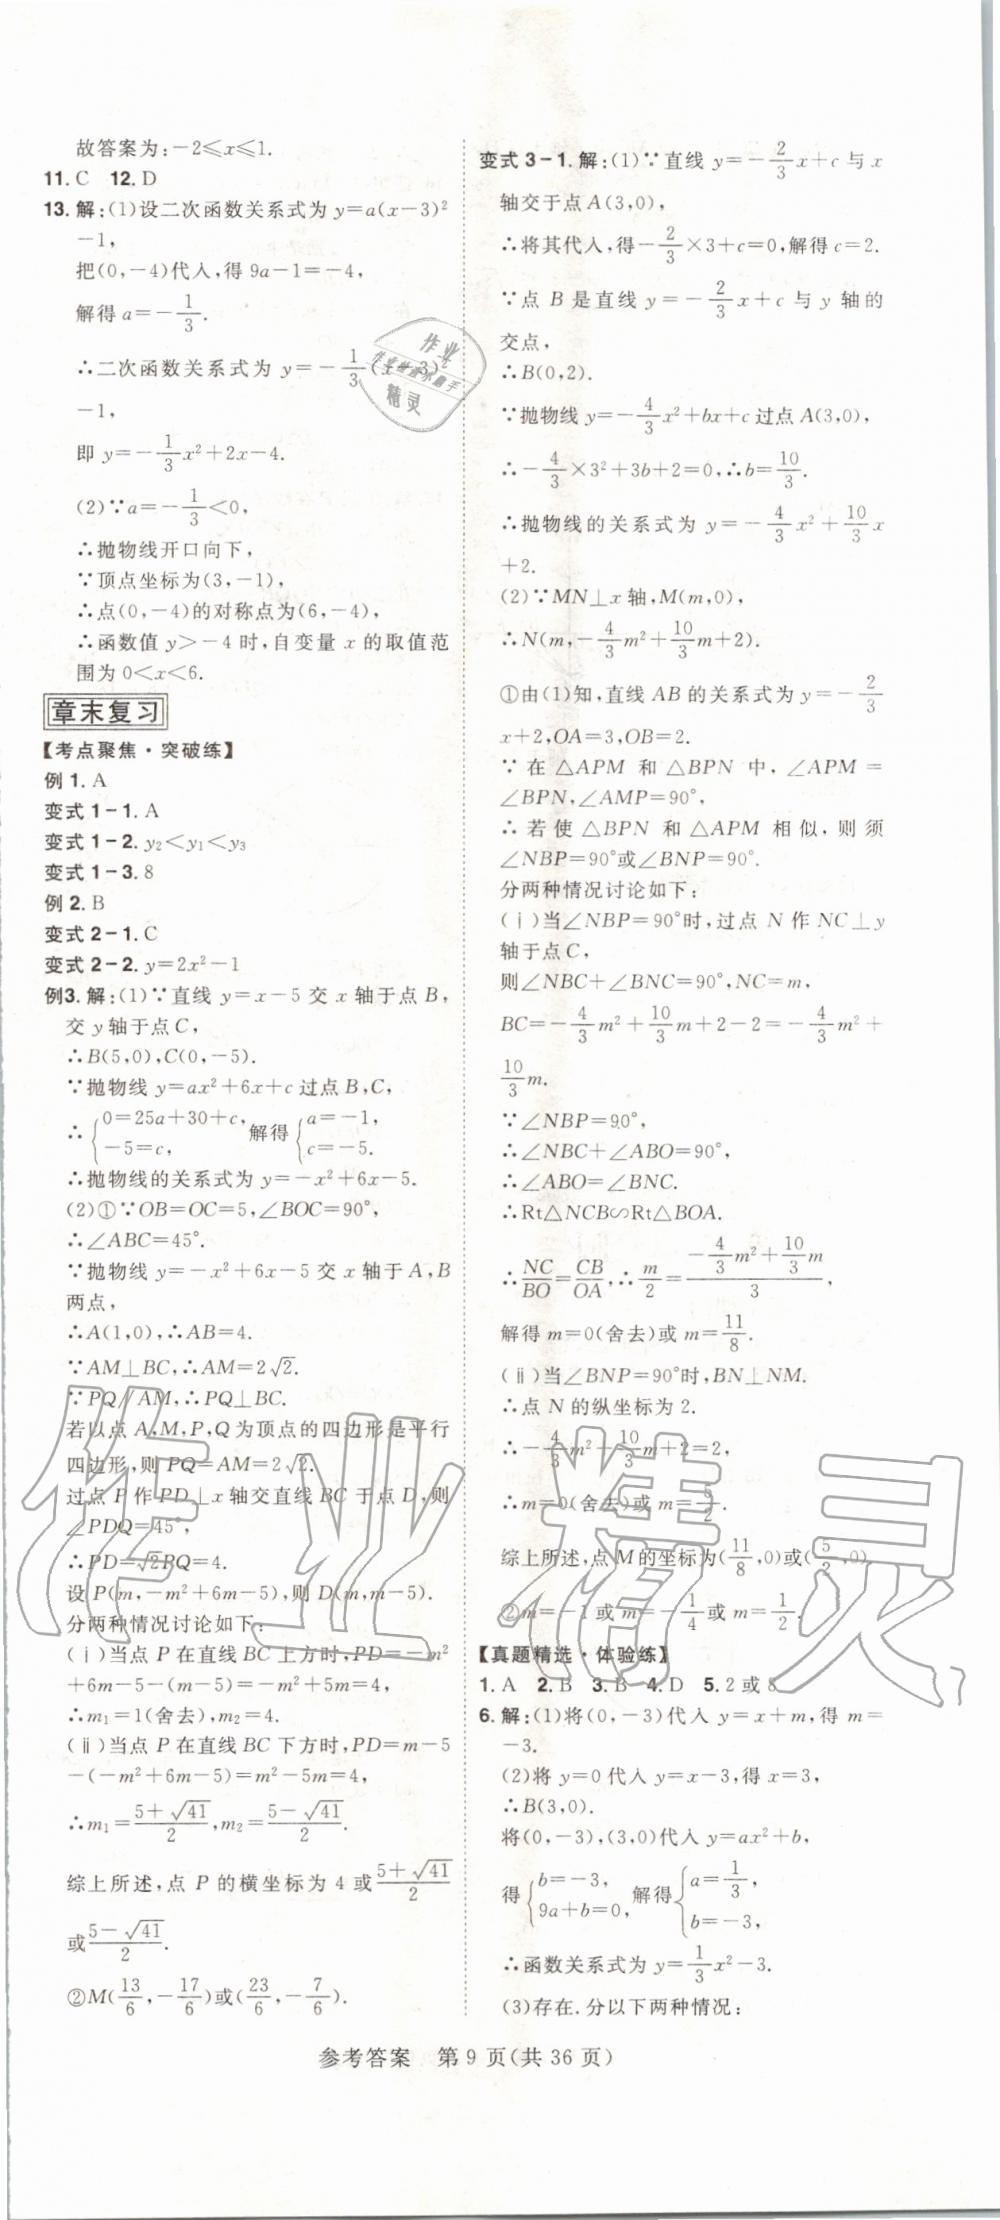 故答案为:-2≤x≤1.
11. C 12. D
13. 解:(1)设二次函数关系式为 y=a(x-3)²
-1,
把(0,-4)代入,得 9a-1=-4,
解得 a=-1/3.
∴二次函数关系式为 y=-1/3(x-3)²
-1,
即 y=-1/3x²+2x-4.
(2)∵a=-1/3<0,
∴抛物线开口向下,
∵顶点坐标为(3,-1),
∴点(0,-4)的对称点为(6,-4),
∴函数值 y>-4 时,自变量 x 的取值范
围为 0<x<6.
章末复习
【考点聚焦·突破练】
例 1. A
变式 1-1. A
变式 1-2. y₂<y₁<y₃
变式 1-3. 8
例 2. B
变式 2-1. C
变式 2-2. y=2x²-1
例3. 解:(1)∵直线 y=x-5 交 x 轴于点 B,
交 y 轴于点 C,
∴B(5,0),C(0,-5).
∵抛物线 y=ax²+6x+c 过点 B,C,
∴{0=25a+30+c, -5=c, 解得{a=-1, c=-5.
∴抛物线的关系式为 y=-x²+6x-5.
(2)①∵OB=OC=5,∠BOC=90°,
∴∠ABC=45°.
∵抛物线 y=-x²+6x-5 交 x 轴于 A,B
两点,
∴A(1,0),∴AB=4.
∵AM⊥BC,∴AM=2√2.
∵PQ∥AM,∴PQ⊥BC.
若以点 A,M,P,Q 为顶点的四边形是平行
四边形,则 PQ=AM=2√2.
过点 P 作 PD⊥x 轴交直线 BC 于点 D,则
∠PDQ=45°,
∴PD=√2PQ=4.
设 P(m,-m²+6m-5),则 D(m,m-5).
分两种情况讨论如下:
(ⅰ)当点 P 在直线 BC 上方时,PD=-m²
+6m-5-(m-5)=-m²+5m=4,
∴m₁=1(舍去),m₂=4.
(ⅱ)当点 P 在直线 BC 下方时,PD=m-5
-(-m²+6m-5)=m²-5m=4,
∴m₁=(5+√41)/2,m₂=(5-√41)/2.
综上所述,点 P 的横坐标为 4 或(5+√41)/2
或(5-√41)/2.
②M(13/6,-17/6)或(23/6,-7/6).
变式 3-1. 解:(1)∵直线 y=-2/3x+c 与 x
轴交于点 A(3,0),
∴将其代入,得-2/3×3+c=0,解得 c=2.
∵点 B 是直线 y=-2/3x+c 与 y 轴的
交点,
∴B(0,2).
∵抛物线 y=-4/3x²+bx+c 过点 A(3,0),
∴-4/3×3²+3b+2=0,∴b=10/3.
∴抛物线的关系式为 y=-4/3x²+10/3x
+2.
(2)∵MN⊥x 轴,M(m,0),
∴N(m,-4/3m²+10/3m+2).
①由(1)知,直线 AB 的关系式为 y=-2/3
x+2,OA=3,OB=2.
∵在△APM 和△BPN 中,∠APM=
∠BPN,∠AMP=90°,
∴若使△BPN 和△APM 相似,则须
∠NBP=90°或∠BNP=90°.
分两种情况讨论如下:
(ⅰ)当∠NBP=90°时,过点 N 作 NC⊥y
轴于点 C,
则∠NBC+∠BNC=90°,NC=m,
BC=-4/3m²+10/3m+2-2=-4/3m²+
10/3m.
∵∠NBP=90°,
∴∠NBC+∠ABO=90°.
∴∠ABO=∠BNC.
∴Rt△NCB∽Rt△BOA.
∴NC/BO=CB/OA,∴m/2=(-4/3m²+10/3m)/3,
解得 m=0(舍去)或 m=11/8.
(ⅱ)当∠BNP=90°时,BN⊥NM.
∴点 N 的纵坐标为 2.
∴-4/3m²+10/3m+2=2,
∴m=0(舍去)或 m=5/2.
综上所述,点 M 的坐标为(11/8,0)或(5/2,0).
②m=-1 或 m=-1/4 或 m=1/2.
【真题精选·体验练】
1. A 2. B 3. B 4. D 5. 2 或 8
6. 解:(1)将(0,-3)代入 y=x+m,得 m=
-3.
(2)将 y=0 代入 y=x-3,得 x=3,
∴B(3,0).
将(0,-3),(3,0)代入 y=ax²+b,
得{b=-3, 9a+b=0, 解得{a=1/3, b=-3,
∴函数关系式为 y=1/3x²-3.
(3)存在.分以下两种情况:
参考答案 第 9 页(共 36 页)
作业精灵